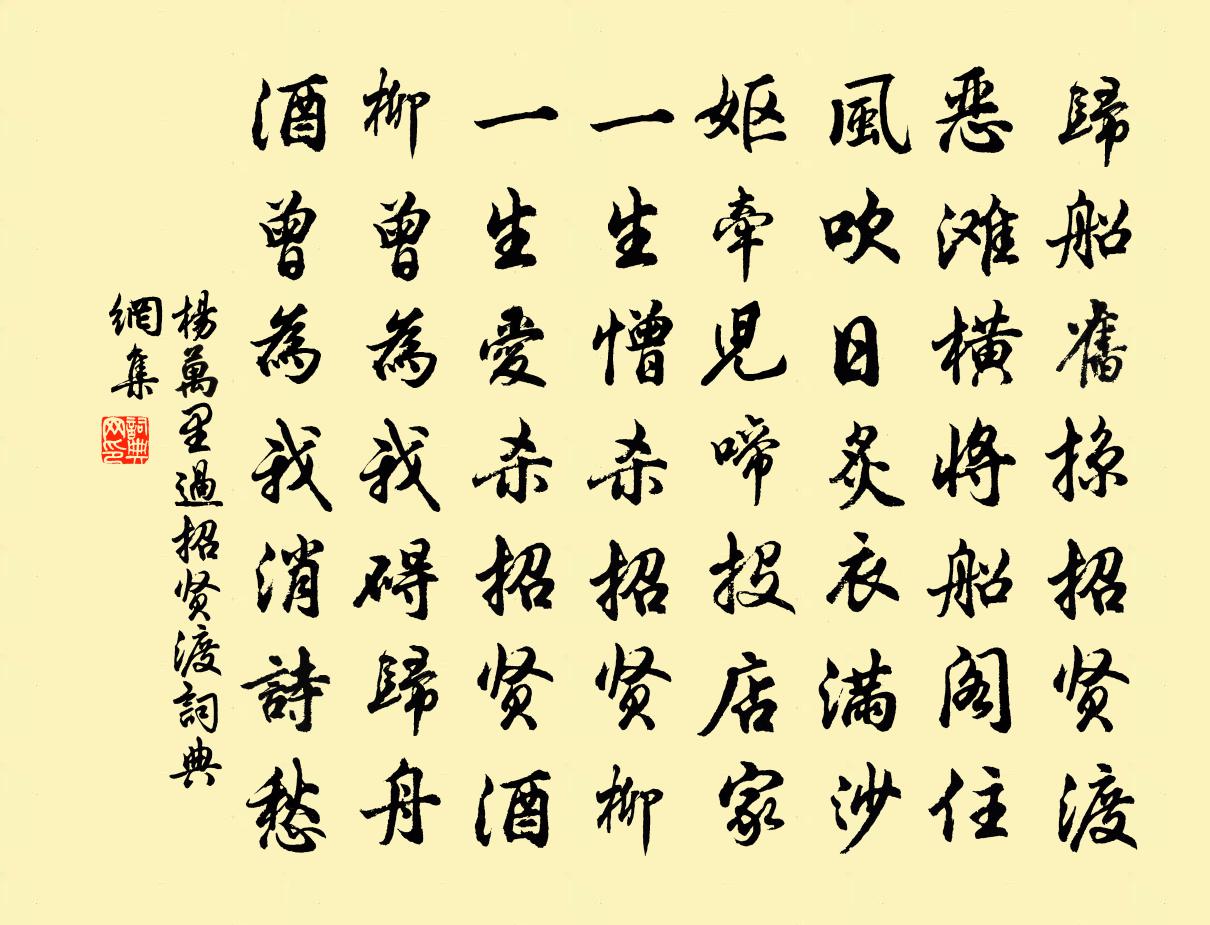 歸船舊掠招贤渡
恶滩横将船阁住
風吹日炙衣满沙
妪牵児啼投店家
一生憎杀招贤柳
一生愛杀招贤酒
柳曾為我碍歸舟
酒曾為我消詩愁
楊萬里過招贤渡詞典
網集
詞典
网印